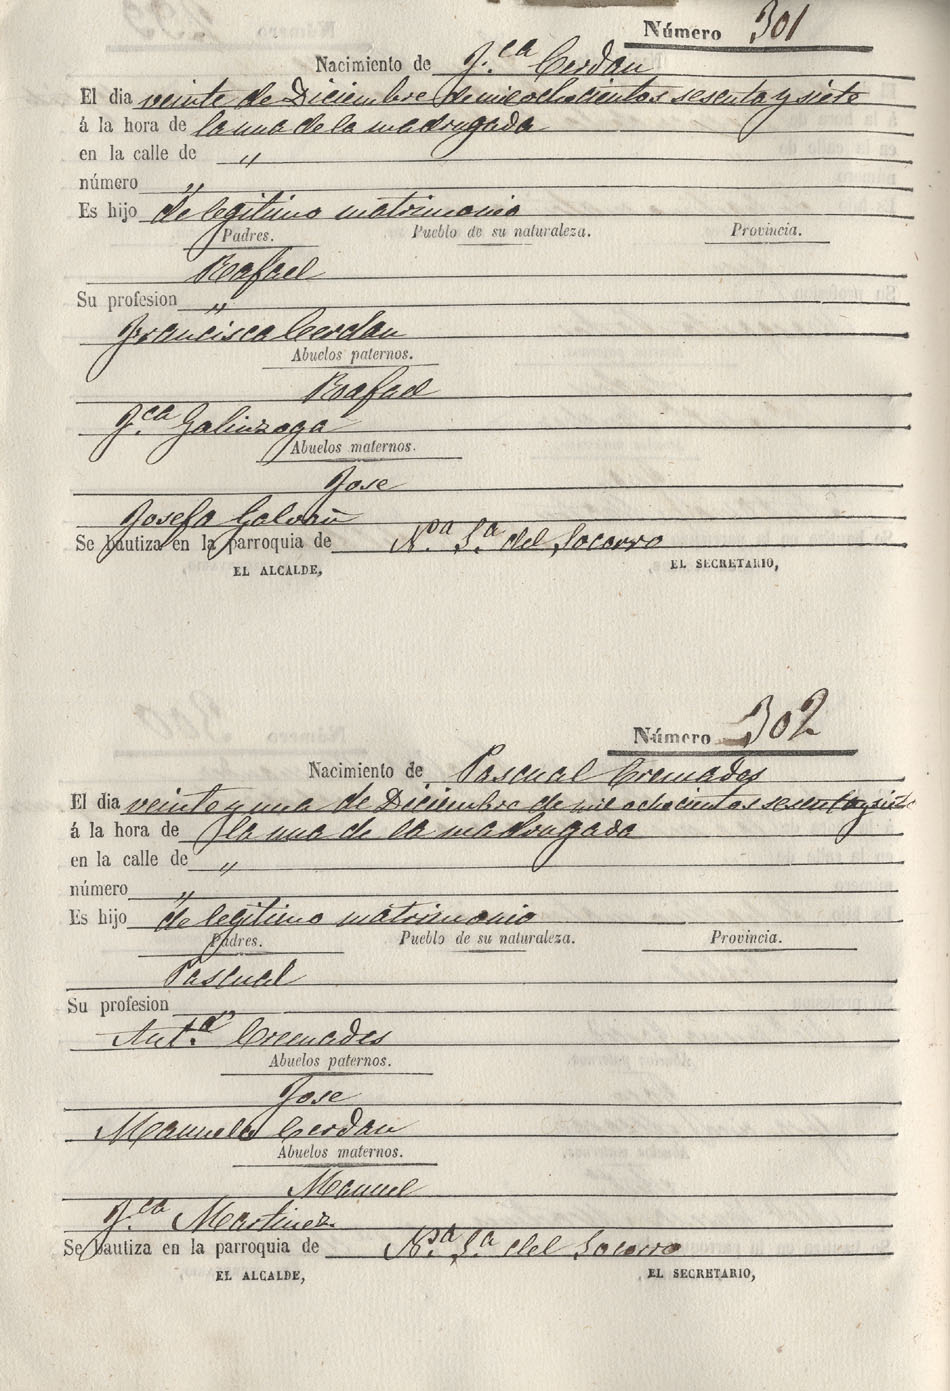 Número 301
Nacimiento de F.ca Cerdan
El dia veinte de Diciembre de mil ochocientos sesenta y siete
á la hora de la una de la madrugada
en la calle de "
número "
Es hijo de legitimo matrimonio
Padres. Pueblo de su naturaleza. Provincia.
Rafael
Su profesion "
Francisca Cerdan
Abuelos paternos.
Rafael
F.ca Galinzoga
Abuelos maternos.
Jose
Josefa Galvañ
Se bautiza en la parroquia de N.ra S.a del Socorro
EL ALCALDE, EL SECRETARIO,
Número 302
Nacimiento de Pascual Cremades
El dia veinte y una de Diciembre de mil ochocientos sesenta y siete
á la hora de la una de la madrugada
en la calle de "
número "
Es hijo de legitimo matrimonio
Padres. Pueblo de su naturaleza. Provincia.
Pascual
Su profesion
Ant.a Cremades
Abuelos paternos.
Jose
Manuela Cerdan
Abuelos maternos.
Manuel
F.ca Martinez
Se bautiza en la parroquia de N.ra S.a del Socorro
EL ALCALDE, EL SECRETARIO,